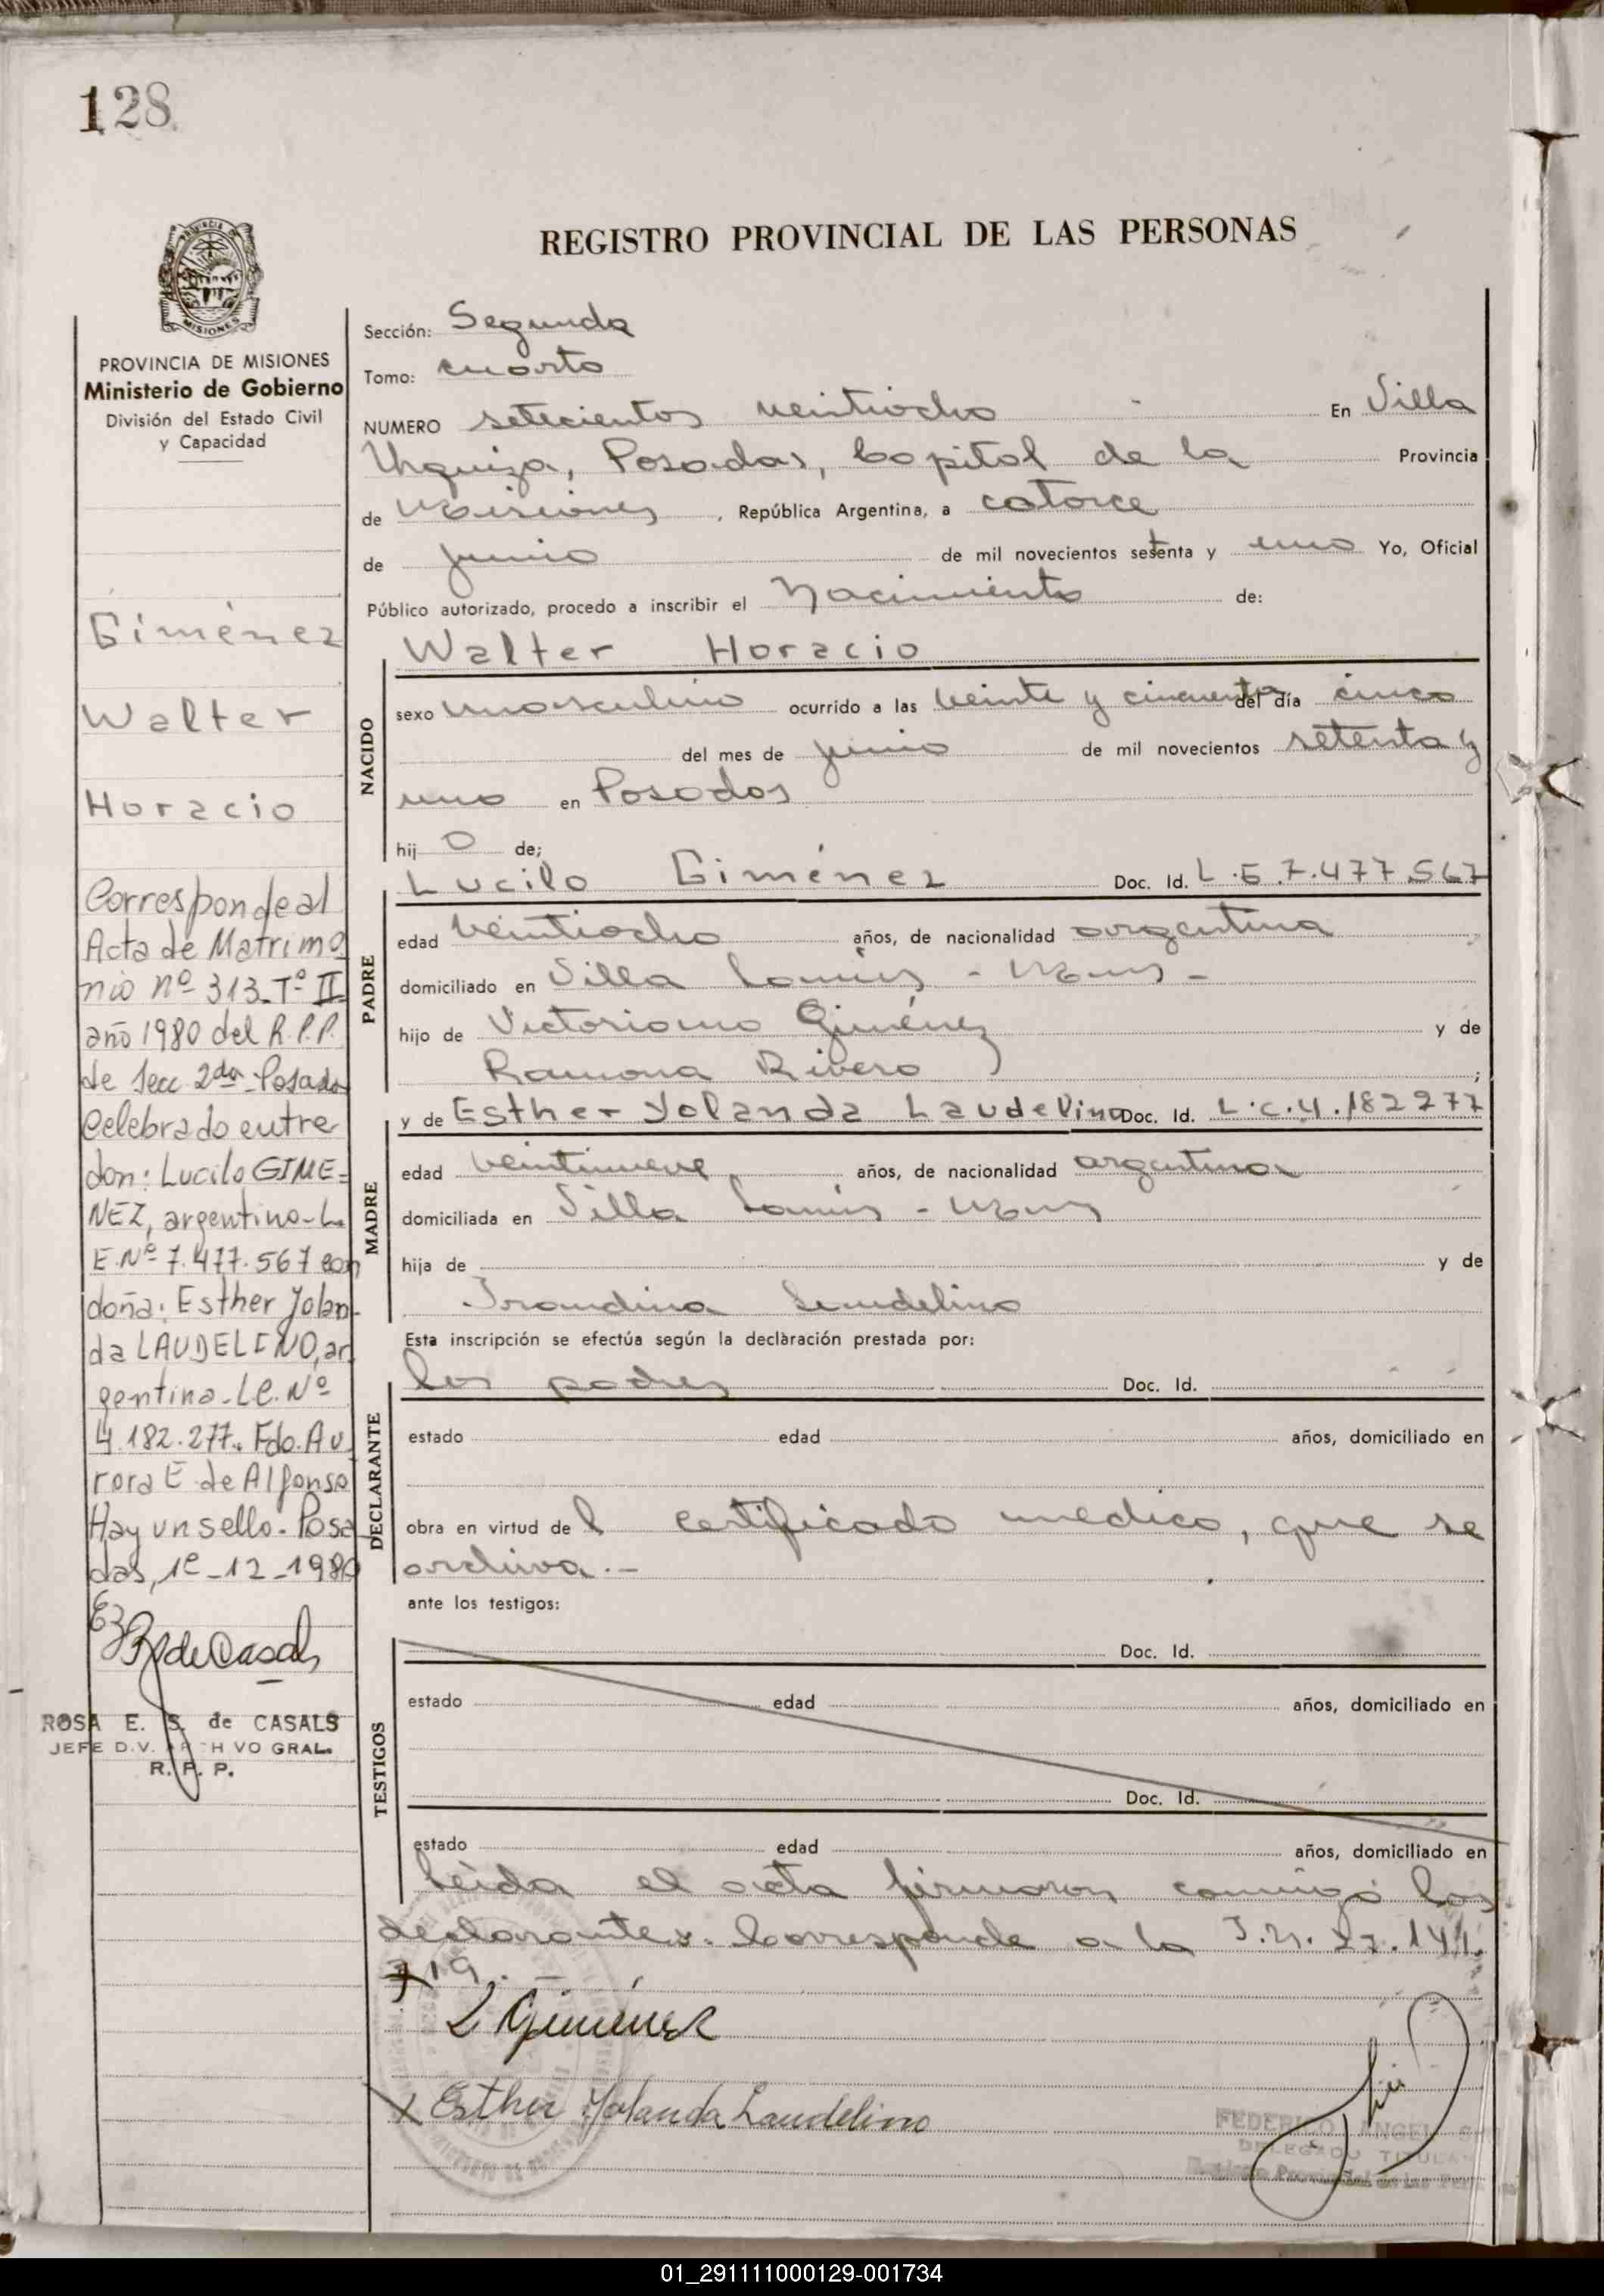 128
REGISTRO PROVINCIAL DE LAS PERSONAS
PROVINCIA DE MISIONES
Ministerio de Gobierno
División del Estado Civil
y Capacidad
Giménez
Walter
Horacio
Corresponde al
Acta de Matrimo
nio nº 313-Tº II
año 1980 del R.P.P.
de Secc 2da Posadas
Celebrado entre
don: Lucilo GIME=
NEZ, argentino-L.
E.Nº 7.477.567 con
doña: Esther Yolan-
da LAUDELINO, ar
gentina-LC. Nº
4.182.277. Fdo. Au
rora E de Alfonso
Hay un sello-Posa
das, 1º-12-1980
ROSA E. S. de CASALS
JEFE DIV. ARCHIVO GRAL.
R. P. P.
Sección: Segunda
Tomo: cuarto
NUMERO setecientos veintiocho En Villa
Urquiza, Posadas, Capital de la Provincia
de Misiones, República Argentina, a catorce
de junio de mil novecientos setenta y uno Yo, Oficial
Público autorizado, procedo a inscribir el Nacimiento de:
Walter Horacio
NACIDO
sexo masculino ocurrido a las veinte y cincuenta del día cinco
del mes de junio de mil novecientos setenta y
uno en Posadas
hijo de;
PADRE
Lucilo Giménez Doc. Id. L.E.7.477.567
edad veintiocho años, de nacionalidad argentina
domiciliado en Villa Lanús -
hijo de Victoriano Giménez y de
Ramona Rivero ;
MADRE
y de Esther Yolanda Laudelino Doc. Id. L.C.4.182277
edad veintinueve años, de nacionalidad argentina
domiciliada en Villa Lanús -
hija de y de
Laudelino
Esta inscripción se efectúa según la declaración prestada por:
DECLARANTE
los padres Doc. Id.
estado edad años, domiciliado en
obra en virtud del certificado médico, que se
archiva.-
ante los testigos:
TESTIGOS
Doc. Id.
estado edad años, domiciliado en
Doc. Id.
estado edad años, domiciliado en
Leida el acta firmaron conmigo los
declarantes. Corresponde a la
L Giménez
x Esther Yolanda Laudelino
FEDERICO ANGEL
DELEGADO TITULAR
Registro Provincial de las Personas
01_291111000129-001734